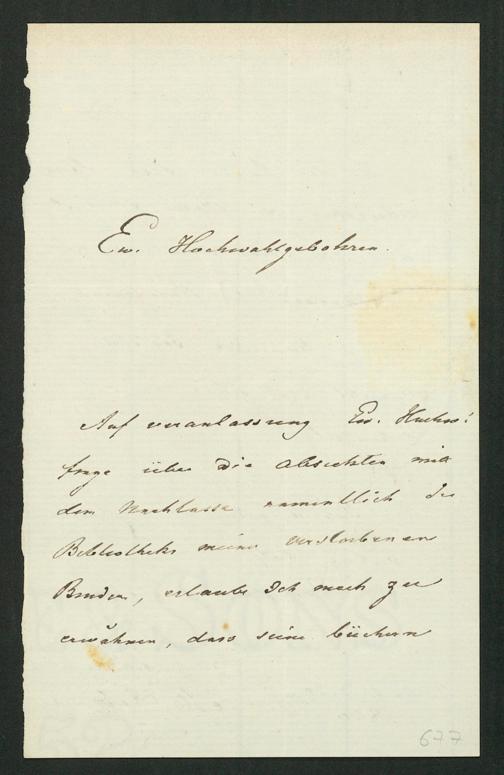 Ew. Hochwohlgebohren.
Auf veranlassung Ew. Hochw:
frage über die absichten mit
dem Nachlasse namentlich der
Bibliotheks meines verstorbenen
Bruders, erlaube Ich mich zu
erwähnen, dass seine büchern
677